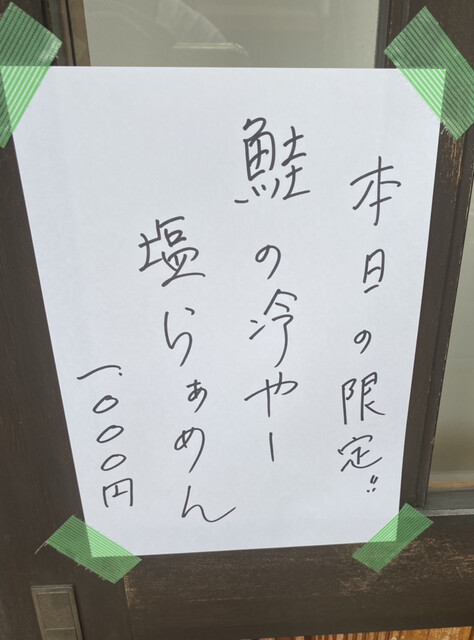 本日の限定!!
鮭の冷やー
塩らぁめん
一.〇〇〇円